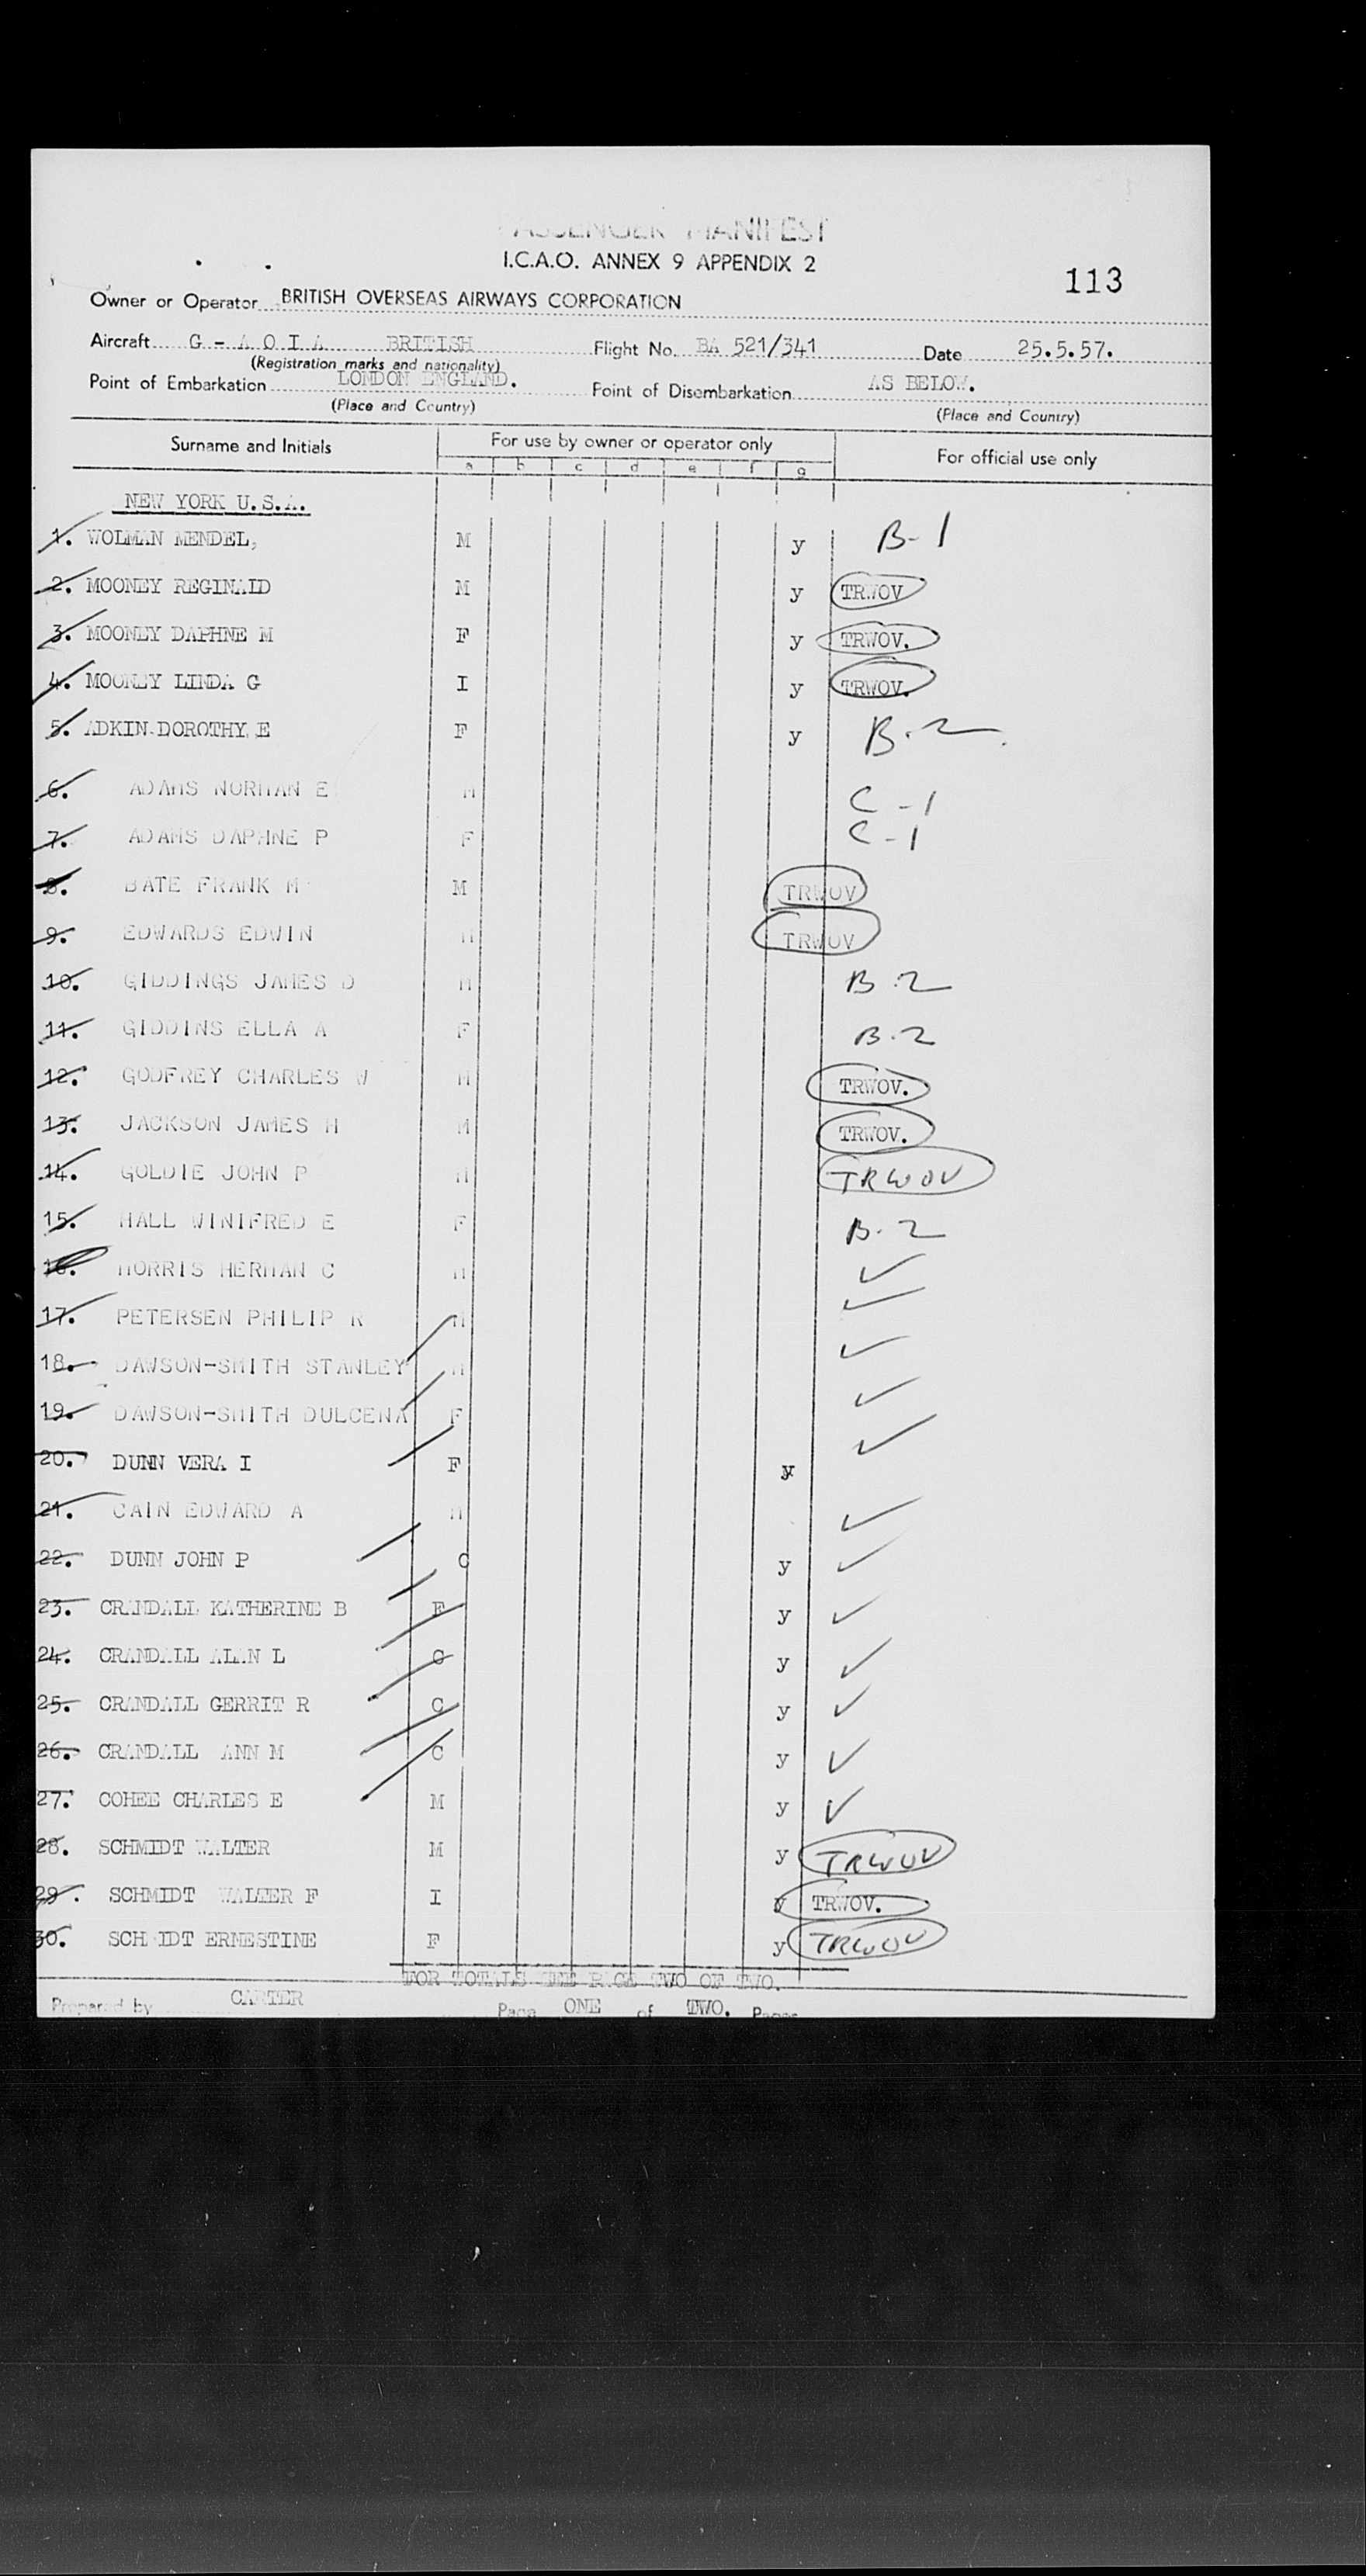 PASSENGER MANIFEST
I.C.A.O. ANNEX 9 APPENDIX 2
113
Owner or Operator BRITISH OVERSEAS AIRWAYS CORPORATION
Aircraft G - A O I A BRITISH Flight No. BA 521/341 Date 25.5.57.
(Registration marks and nationality)
Point of Embarkation LONDON ENGLAND. Point of Disembarkation AS BELOW.
(Place and Country) (Place and Country)
Surname and Initials For use by owner or operator only For official use only
a b c d e f g
NEW YORK U.S.A.
1. WOLMAN MENDEL, M y B-1
2. MOONEY REGINALD M y TRWOV
3. MOONEY DAPHNE M F y TRWOV.
4. MOONEY LINDA G I y TRWOV.
5. ADKIN DOROTHY E F y B.2
6. ADAMS NORMAN E M C-1
7. ADAMS DAPHNE P F C-1
8. BATE FRANK M M TRWOV
9. EDWARDS EDWIN M TRWOV
10. GIDDINGS JAMES D M B.2
11. GIDDINS ELLA A F B.2
12. GODFREY CHARLES W M TRWOV.
13. JACKSON JAMES H M TRWOV.
14. GOLDIE JOHN P M TRWOV
15. HALL WINIFRED E F B.2
16. MORRIS HERMAN C M ✓
17. PETERSEN PHILIP R M ✓
18. DAWSON-SMITH STANLEY M ✓
19. DAWSON-SMITH DULCENA F ✓
20. DUNN VERA I F y ✓
21. CAIN EDWARD A M ✓
22. DUNN JOHN P C y ✓
23. CRANDALL KATHERINE B F y ✓
24. CRANDALL ALAN L C y ✓
25. CRANDALL GERRIT R C y ✓
26. CRANDALL ANN M C y ✓
27. COHEE CHARLES E M y ✓
28. SCHMIDT WALTER M y TRWOV
29. SCHMIDT WALTER F I y TRWOV.
30. SCHMIDT ERNESTINE F y TRWOV
FOR TOTALS SEE PAGE TWO OF TWO.
Prepared by CARTER Page ONE of TWO. Pages